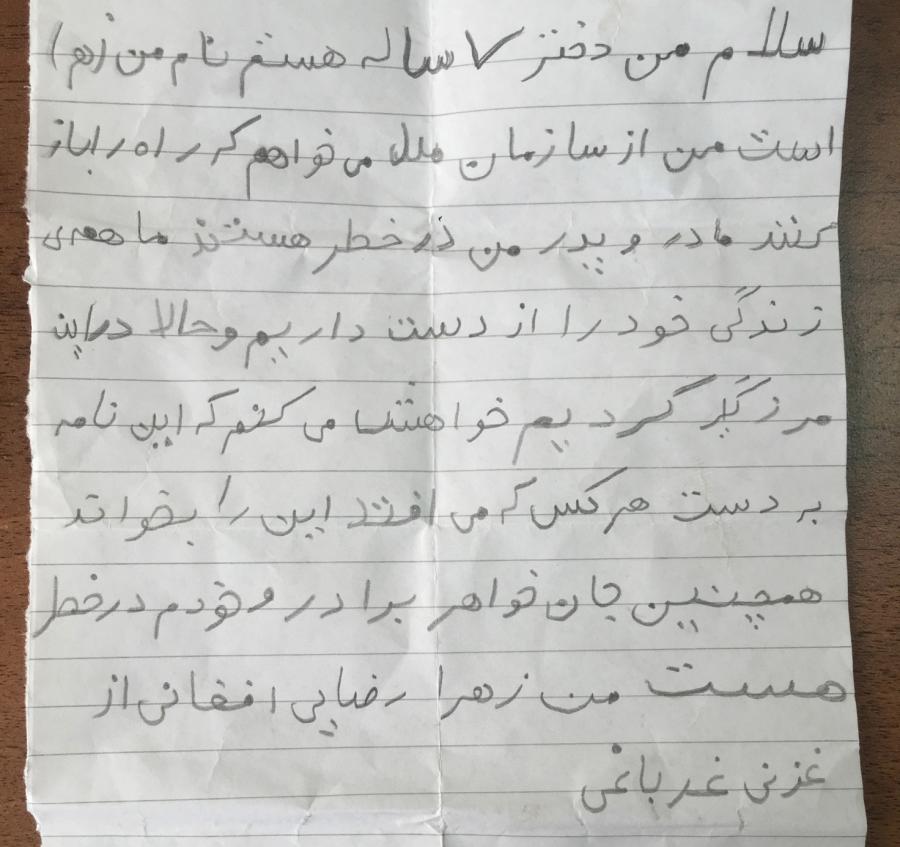 سلام من دختر ۷ ساله هستم نام من (زهرا)
است من از سازمان ملل می خواهم که راه را باز
کنند مادر و پدر من در خطر هستند ما همه ی
زندگی خود را از دست داریم و حالا در این
مرز گیر کردیم خواهشا می کنم که این نامه
به دست هر کس که می افتد این را بخواند
همچنین جان خواهر برادر و خودم در خطر
هست من زهرا رضایی افغانی از
غزنی غدباغی